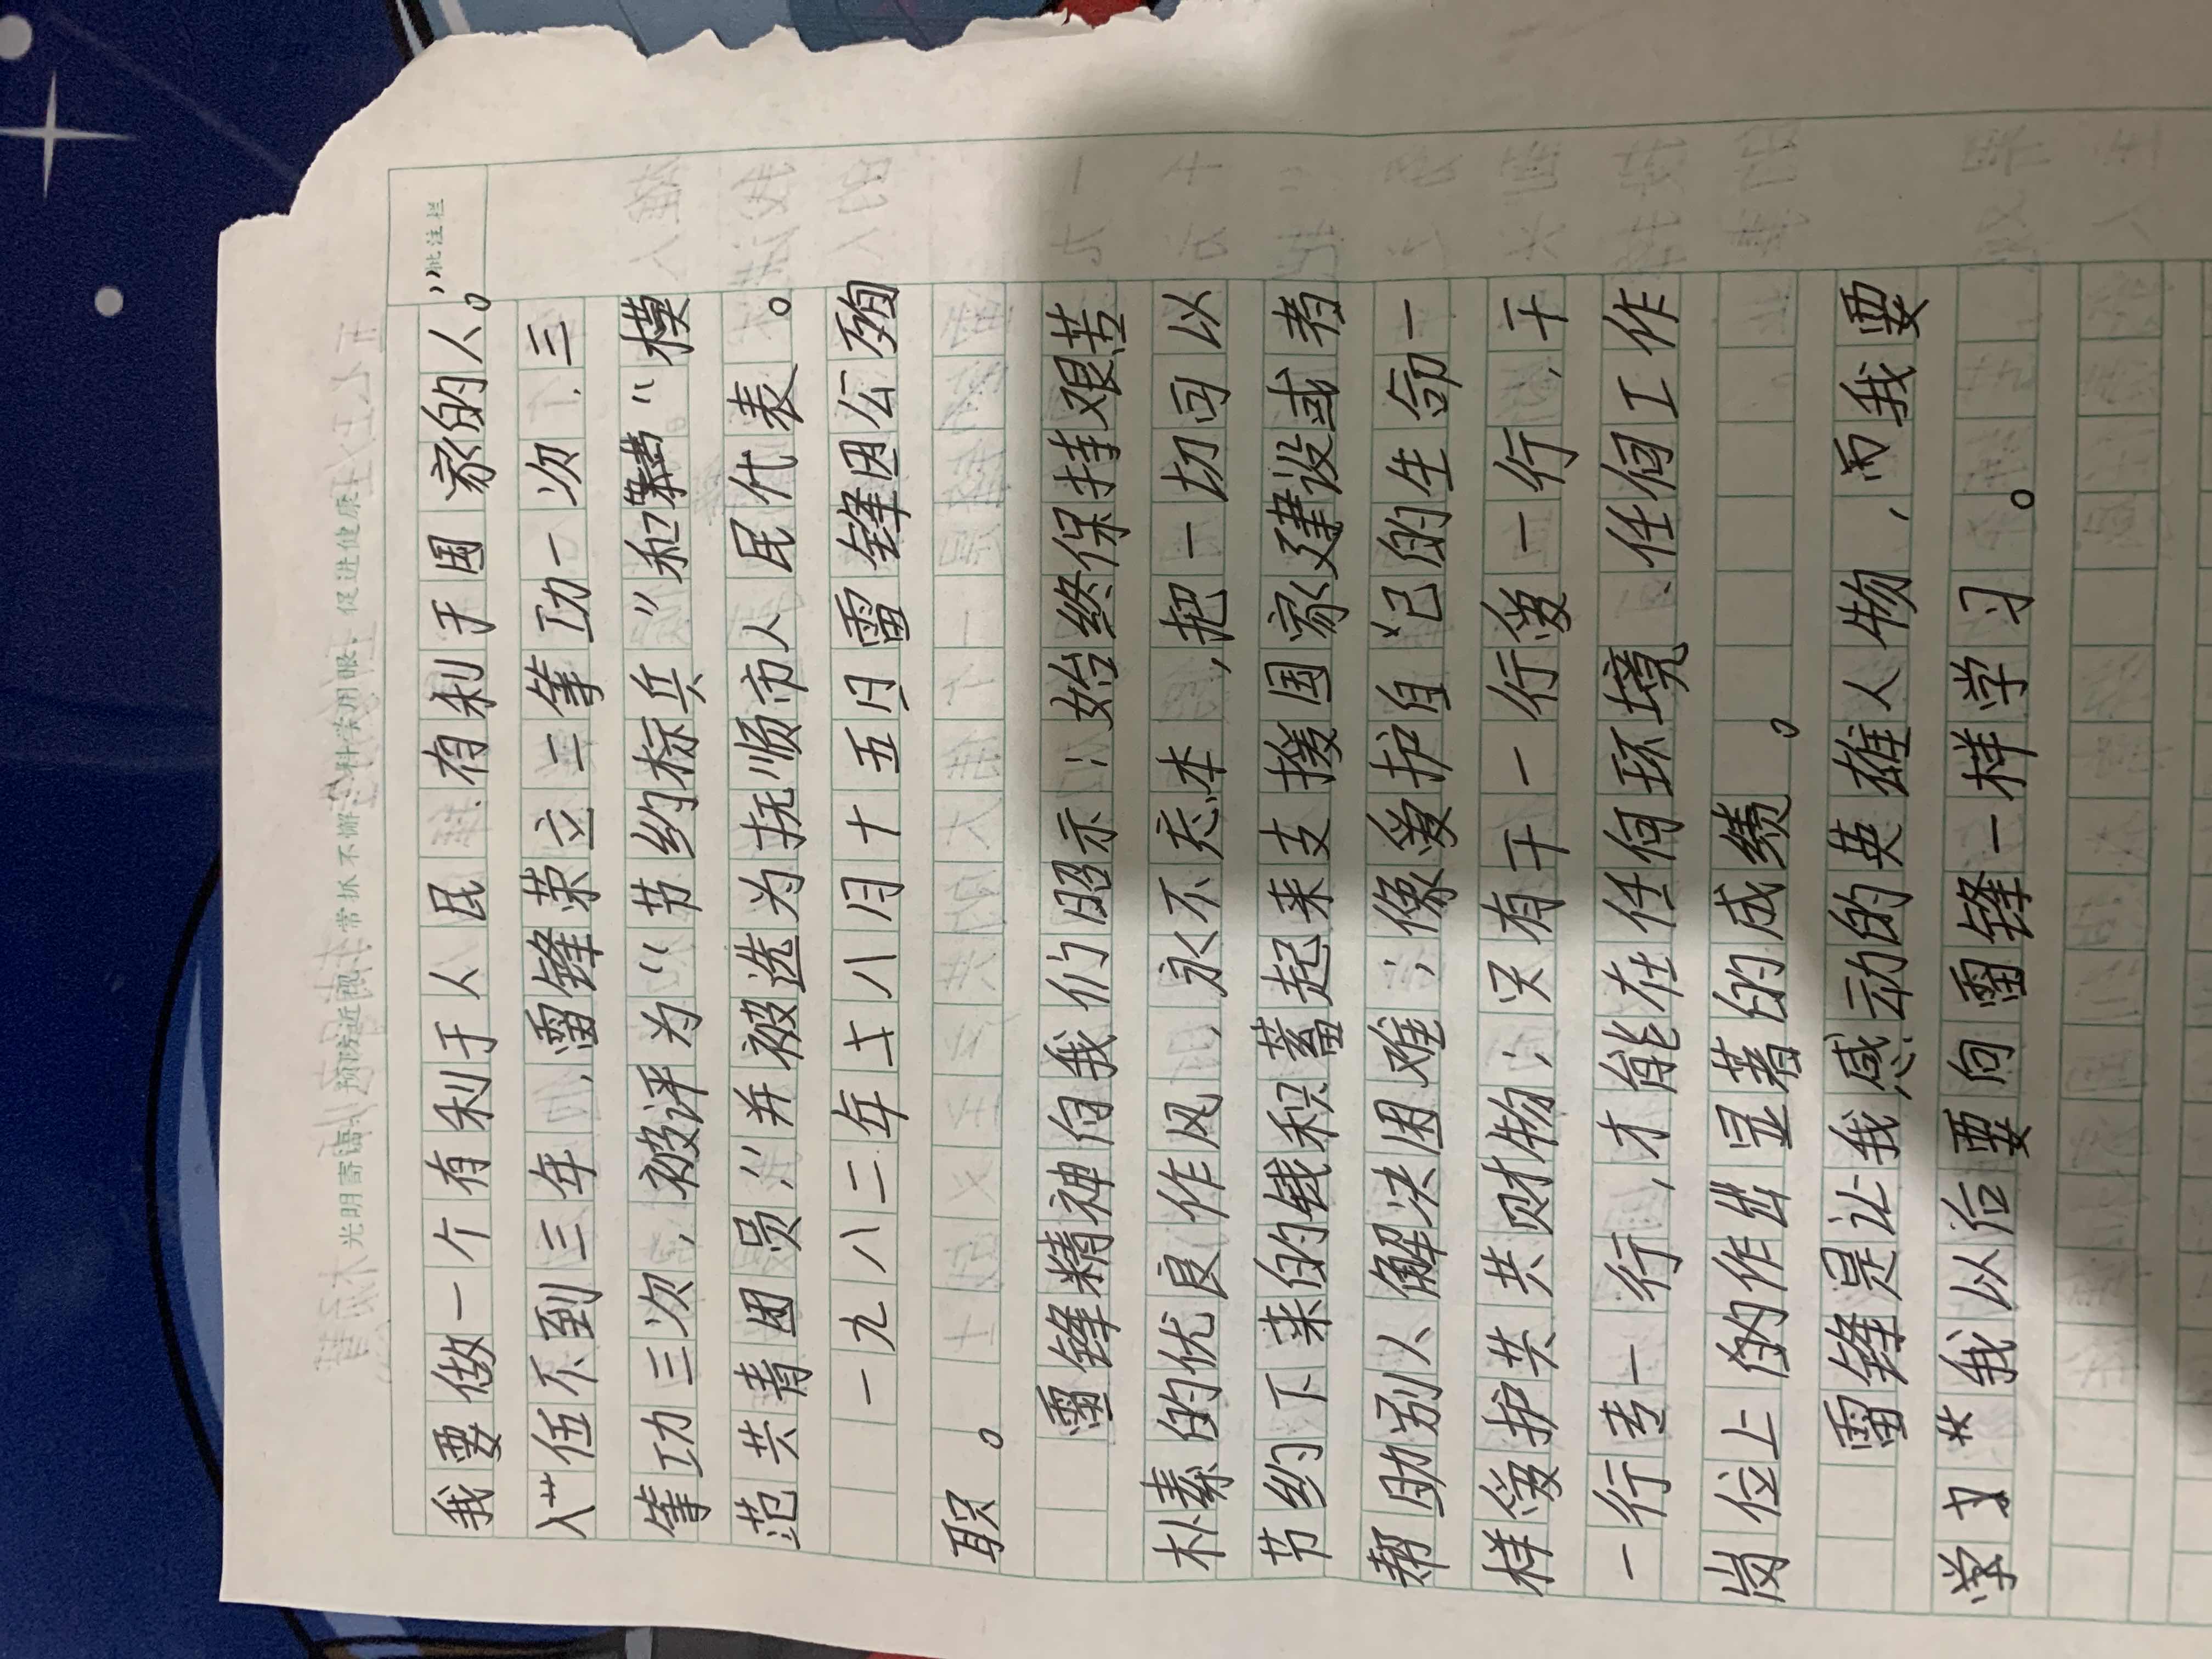 光明寄语： 预防近视 常抓不懈 科学用眼 促进健康
批注栏
我要做一个有利于人民、有利于国家的人。”
入伍不到三年，雷锋荣立二等功一次，三
等功三次，被评为“节约标兵”和“模
范共青团员”并被选为抚顺市人民代表。
一九八二年七八月十五月雷锋因公殉
职。
雷锋精神向我们昭示：始终保持艰苦
朴素的优良作风，永不忘本，把一切可以
节约下来的钱积蓄起来支援国家建设或者
帮助别人解决困难；像爱护自己的生命一
样爱护共共财物；只有干一行爱一行，干
一行专一行，才能在任何环境、任何工作
岗位上的作出显著的成绩。
雷锋是让我感动的英雄人物，而我要
学 我以后要向雷锋一样学习。